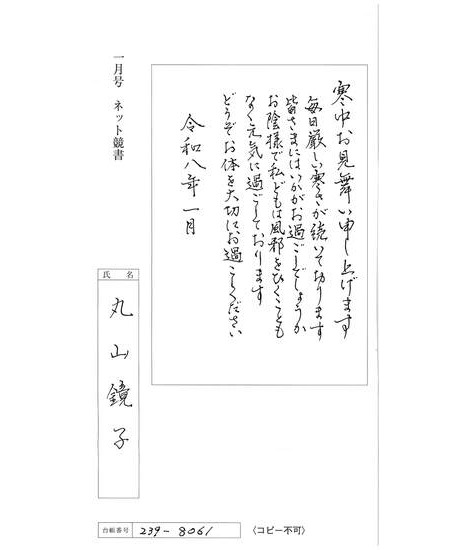 寒中お見舞い申し上げます
毎日厳しい寒さが続いて切ります
皆さまにはいかがお過ごしでしょうか
お陰様で私どもは風邪をひくことも
なく元気に過ごしております
どうぞお体を大切にお過ごしください
令和八年一月
一月号 ネット競書
氏名
丸山鏡子
台紙番号 239-8061
〈コピー不可〉